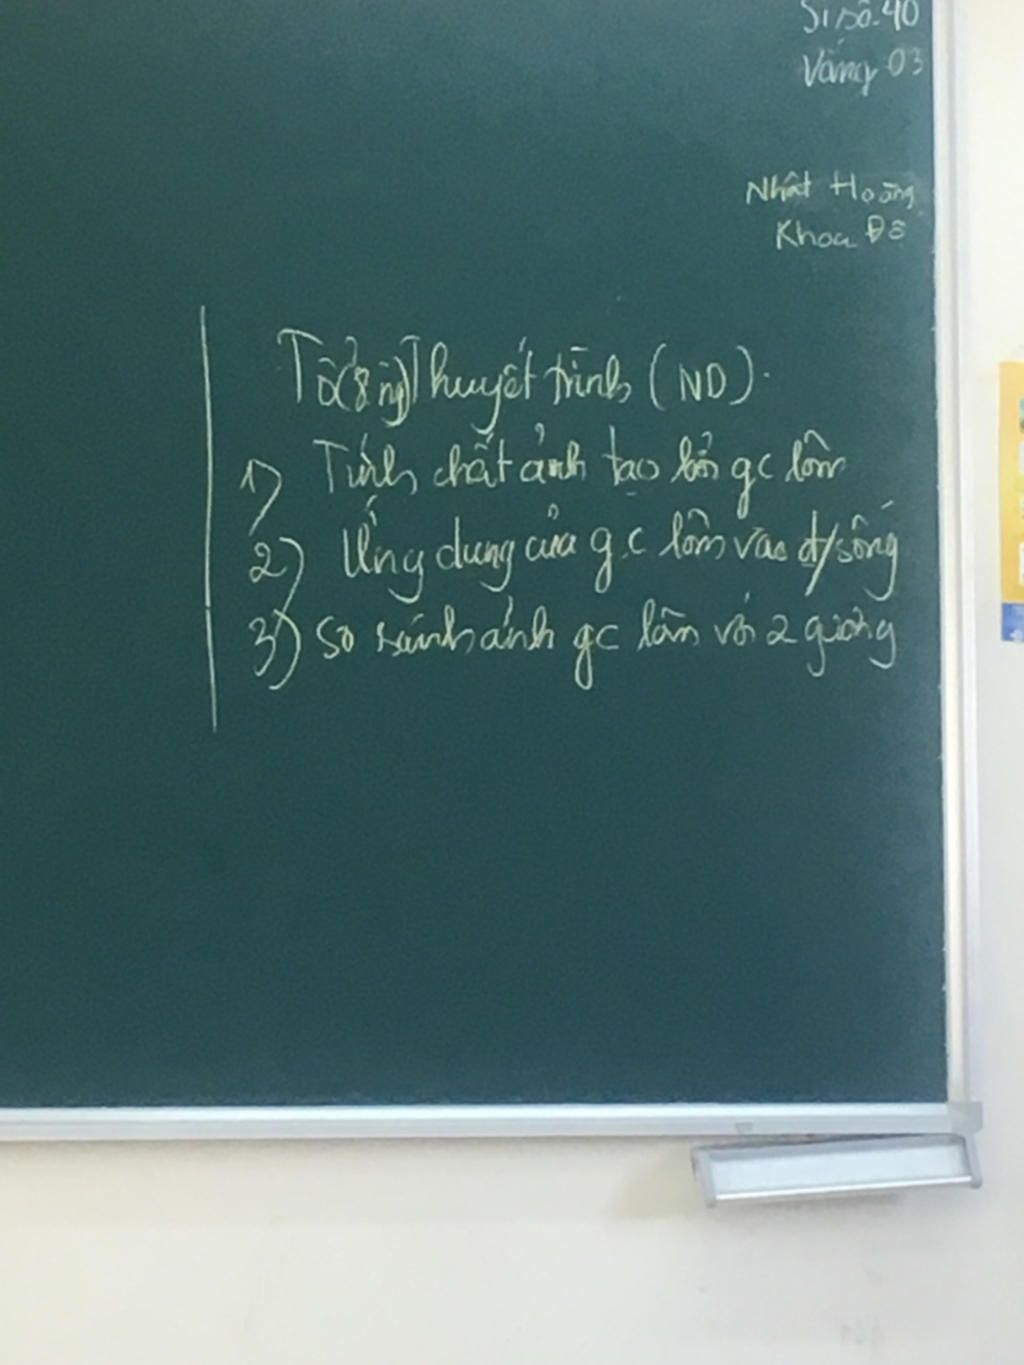 Sĩ số: 40
Vắng 03
Nhất Hoàng
Khoa Đô
Tổ (8 ng) Thuyết trình (ND).
1) Tính chất ảnh tạo bởi gc lõm
2) Ứng dụng của gc lõm vào đ/sống
3) So sánh ảnh gc lõm với 2 gương